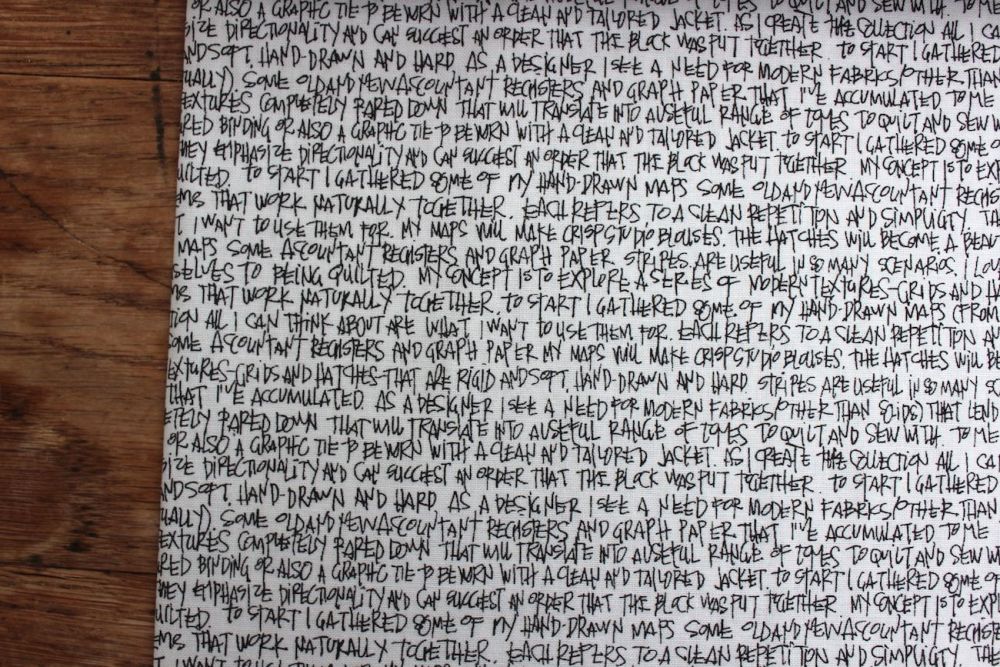 OR ALSO A GRAPHIC TIE TO BE WORN WITH A CLEAN AND TAILORED JACKET. AS I CREATE THE COLLECTION ALL I CA
SIZE DIRECTIONALITY AND CAN SUGGEST AN ORDER THAT THE BLOCK WAS PUT TOGETHER. TO START I GATHERED
ANDSOFT. HAND-DRAWN AND HARD AS A DESIGNER I SEE A NEED FOR MODERN FABRICS (OTHER THAN
UALLY). SOME OLD AND NEW ASCOUNTANT RECHSTERS AND GRAPH PAPER THAT I'VE ACCUMULATED TO ME
EXTURES COMPLETELY PARED DOWN THAT WILL TRANSLATE INTO A USEFUL RANGE OF TOMES TO QUILT AND SEW W
RED BINDING OR ALSO A GRAPHIC TIE TO BE WORN WITH A CLEAN AND TAILORED JACKET. TO START I GATHERED SOME O
HEY EMPHASIZE DIRECTIONALITY AND CAN SUGGEST AN ORDER THAT THE BLOCK WAS PUT TOGETHER MY CONCEPT IS TO EXP
UILTED. TO START I GATHERED SOME OF MY HAND-DRAWN MAPS SOME OLD AND NEW ASCOUNTANT RECHS
EMS THAT WORK NATURALLY TOGETHER. EACH REFERS TO A CLEAN REPETITION AND SIMPLICITY TH
I WANT TO USE THEM FOR. MY MAPS WILL MAKE CRISP STUDIO BLOUSES. THE HATCHES WILL BECOME A BEAU
MAPS SOME ASCOUNTANT RECHSTERS AND GRAPH PAPER STRIPES ARE USEFUL IN SO MANY SCENARIOS. I LOV
SELVES TO BEING QUILTED. MY CONCEPT IS TO EXPLORE A SERIES OF MODERN TEXTURES-GRIDS AND HA
MS THAT WORK NATURALLY TOGETHER. TO START I GATHERED SOME OF MY HAND-DRAWN MAPS (FROM
TION ALL I CAN THINK ABOUT ARE WHAT I WANT TO USE THEM FOR. EACH REFERS TO A CLEAN REPETITION AN
SOME ASCOUNTANT RECHSTERS AND GRAPH PAPER MY MAPS WILL MAKE CRISP STUDIO BLOUSES. THE HATCHES WILL BE
EXTURES-GRIDS AND HATCHES-THAT ARE RIGID ANDSOFT. HAND-DRAWN AND HARD STRIPES ARE USEFUL IN SO MANY SC
THAT I'VE ACCUMULATED. AS A DESIGNER I SEE A NEED FOR MODERN FABRICS (OTHER THAN SOLIDS) THAT LEND
ETELY PARED DOWN THAT WILL TRANSLATE INTO A USEFUL RANGE OF TOMES TO QUILT AND SEW WITH. TO ME
OR ALSO A GRAPHIC TIE TO BE WORN WITH A CLEAN AND TAILORED JACKET. AS I CREATE THE COLLECTION ALL I CA
SIZE DIRECTIONALITY AND CAN SUGGEST AN ORDER THAT THE BLOCK WAS PUT TOGETHER. TO START I GATHERED
ANDSOFT. HAND-DRAWN AND HARD AS A DESIGNER I SEE A NEED FOR MODERN FABRICS (OTHER THAN
UALLY). SOME OLD AND NEW ASCOUNTANT RECHSTERS AND GRAPH PAPER THAT I'VE ACCUMULATED TO ME
EXTURES COMPLETELY PARED DOWN THAT WILL TRANSLATE INTO A USEFUL RANGE OF TOMES TO QUILT AND SEW W
RED BINDING OR ALSO A GRAPHIC TIE TO BE WORN WITH A CLEAN AND TAILORED JACKET. TO START I GATHERED SOME O
HEY EMPHASIZE DIRECTIONALITY AND CAN SUGGEST AN ORDER THAT THE BLOCK WAS PUT TOGETHER MY CONCEPT IS TO EXPL
UILTED. TO START I GATHERED SOME OF MY HAND-DRAWN MAPS SOME OLD AND NEW ASCOUNTANT RECHS
EMS THAT WORK NATURALLY TOGETHER. EACH REFERS TO A CLEAN REPETITION AND SIMPLICITY THA